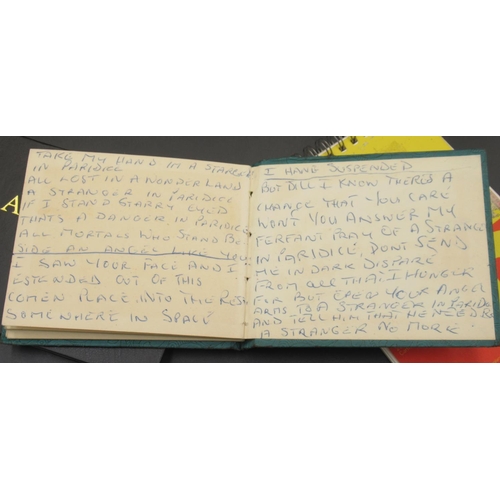 A
TAKE MY HAND IM A STRANGE
IN PARIDICE
ALL LOST IN A WONDERLAND
A STRANGER IN PARIDICE
IF I STAND STARRY EYED
THATS A DANGER IN PARIDICE
ALL MORTALS WHO STAND BE
SIDE AN ANGEL LIKE YOU
I SAW YOUR FACE AND I
ESTENDED OUT OF THIS
COMEN PLACE, INTO THE RESH
SOMEWHERE IN SPACE
I HAVE SUSPENDED
BUT DILL I KNOW THERES A
CHANCE THAT YOU CARE
WONT YOU ANSWER MY
FERFANT PRAY OF A STRANGE
IN PARIDICE, DONT SEND
ME IN DARK DISPARE
FROM ALL THAT I HUNGER
FOR BUT OPEN YOUR ANGEL
ARMS TO A STRANGER IN PARIDI
AND TELL HIM THAT HE NEED BE
A STRANGER NO MORE.